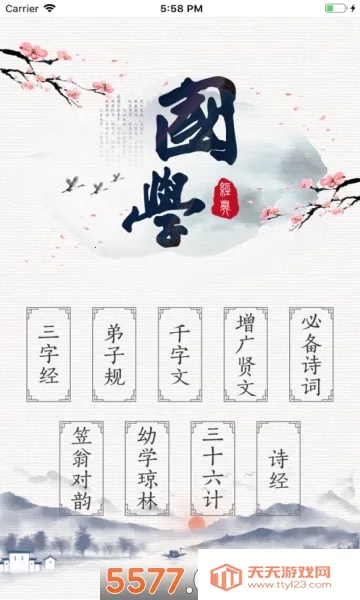 Carrier 5:58 PM
國學
經典
三字经
弟子规
千字文
增广贤文
必备诗词
笠翁对韵
幼学琼林
三十六计
诗经
5577.
天天游戏网
www.ttyl23.com